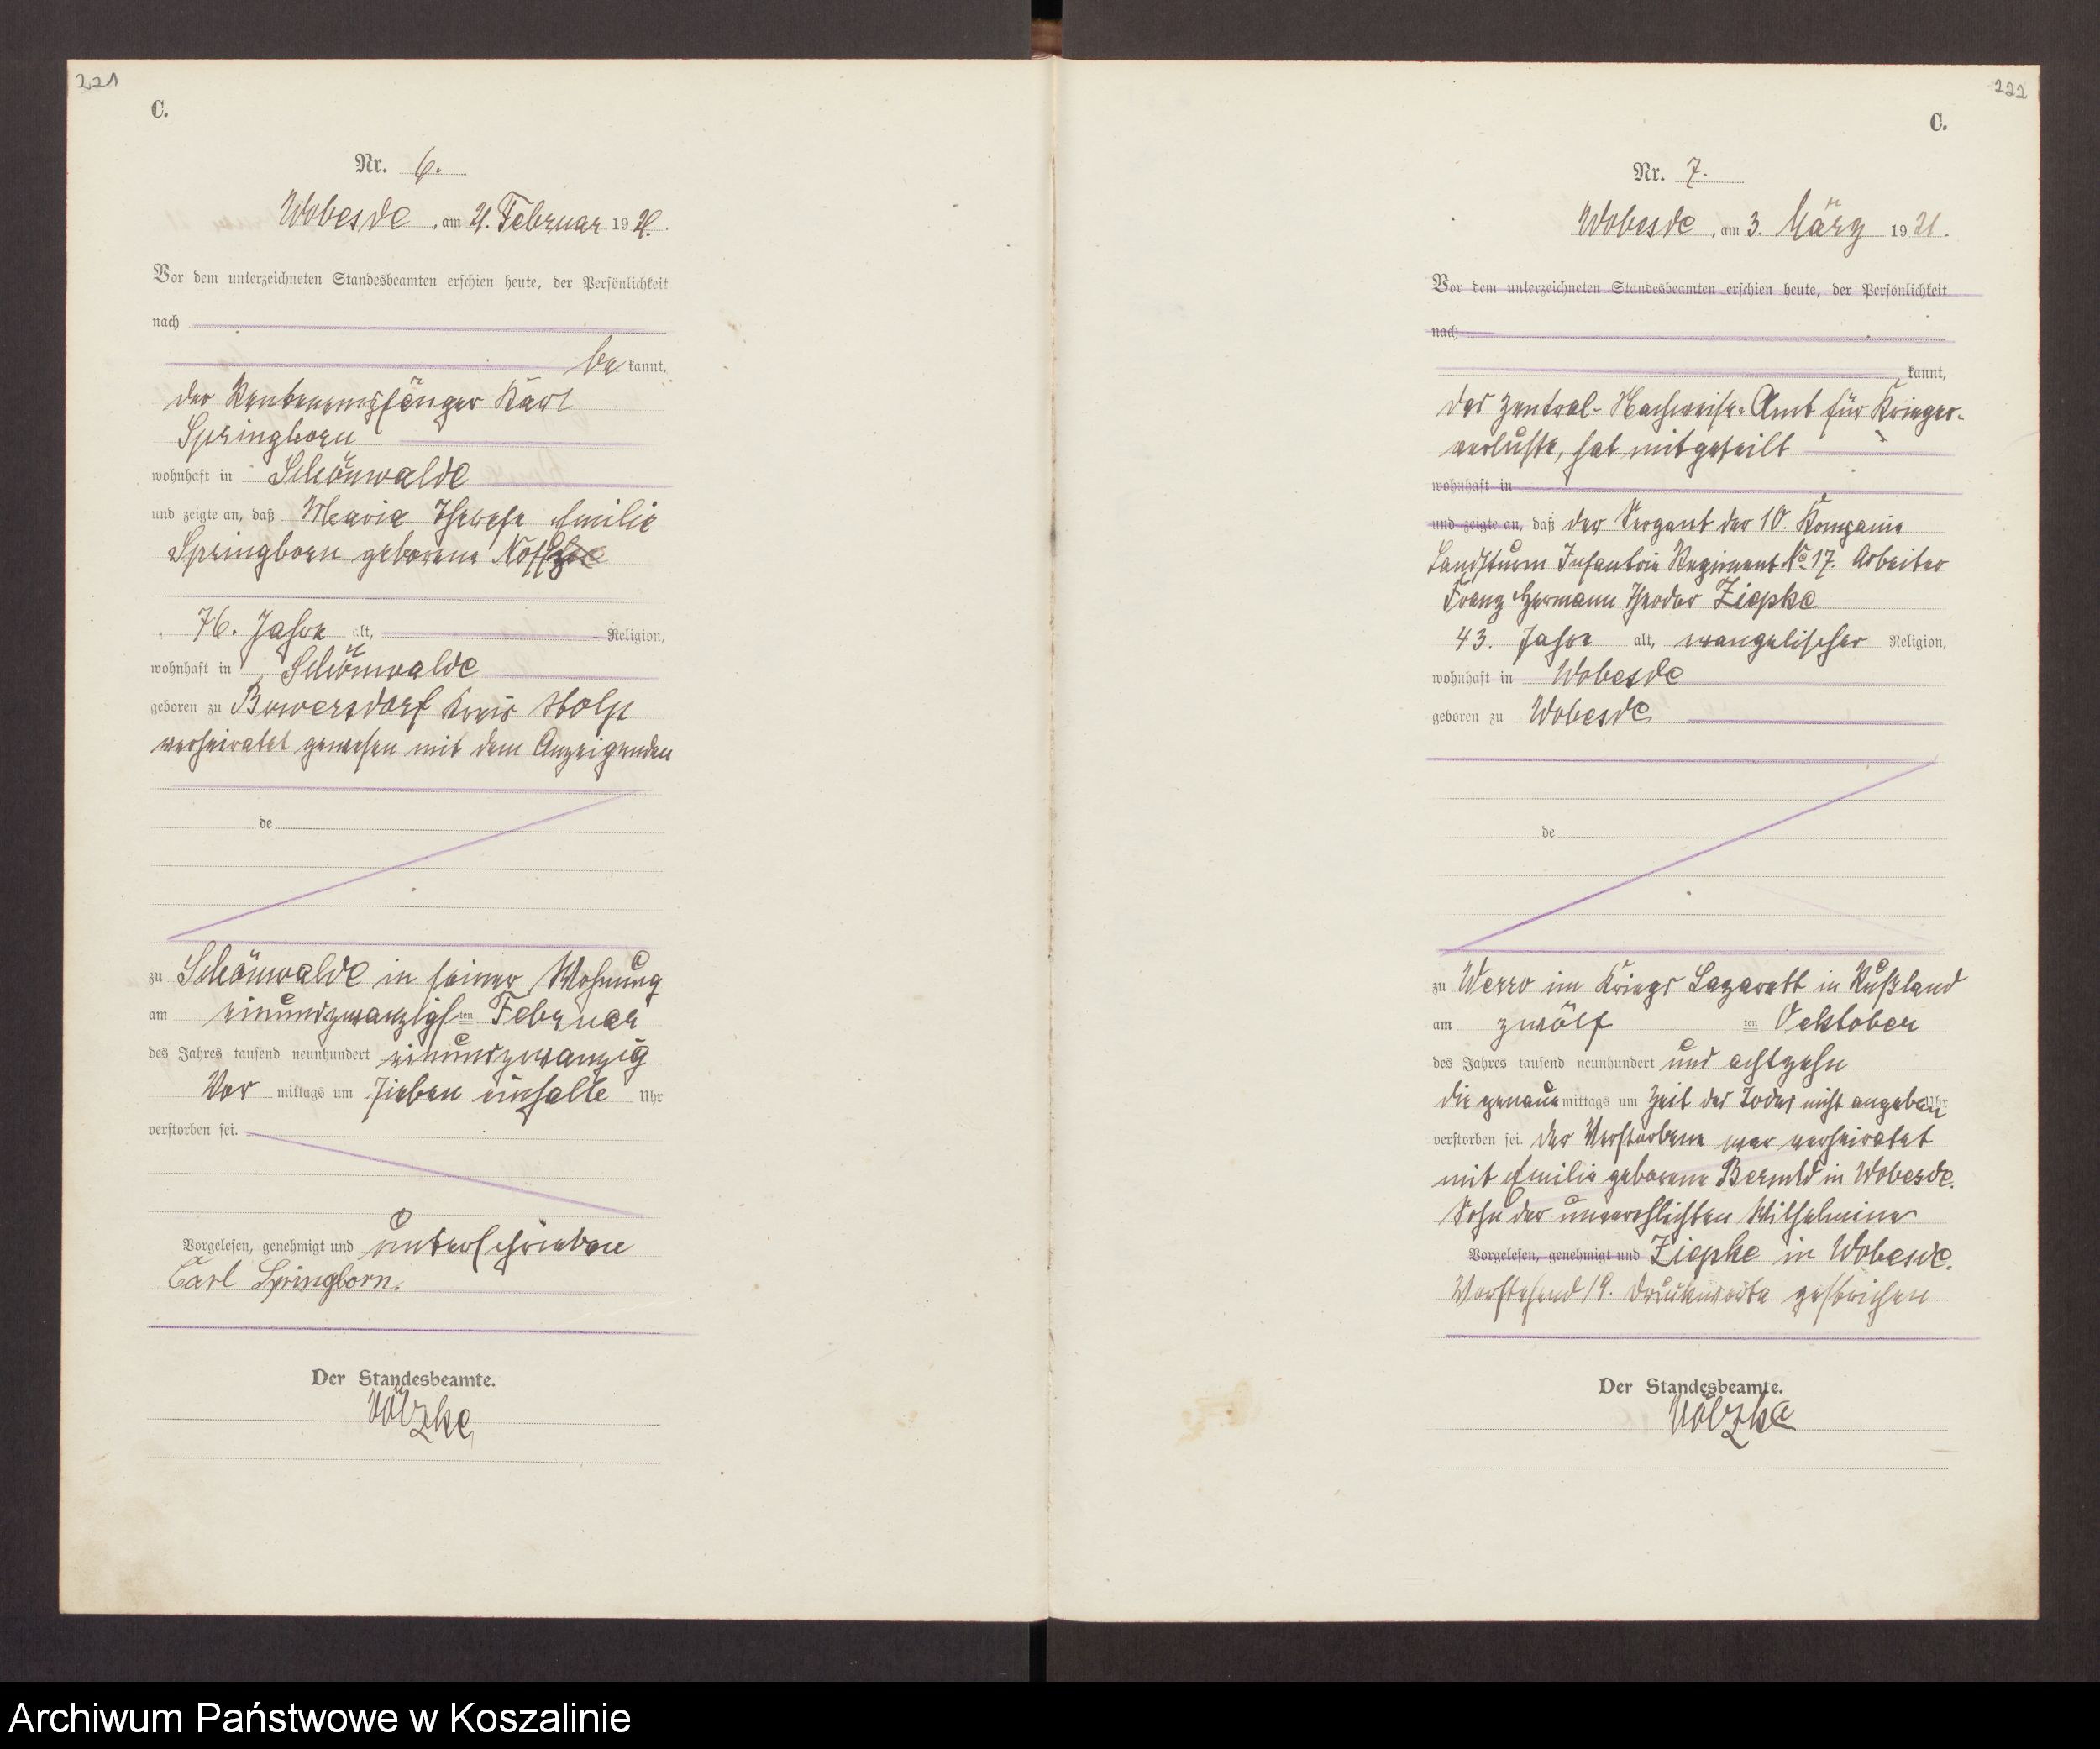 221
C.
Nr. 6.
Wobesde, am 21. Februar 1921.
Vor dem unterzeichneten Standesbeamten erschien heute, der Persönlichkeit
nach
be kannt,
der Rentenempfänger Karl
Springborn
wohnhaft in Schönwalde
und zeigte an, daß Maria Therese Emilie
Springborn geborene
76. Jahre alt, Religion,
wohnhaft in Schönwalde
geboren zu Kreis Stolp
verheiratet gewesen mit dem Anzeigenden
de
zu Schönwalde in seiner Wohnung
am einundzwanzigsten Februar
des Jahres tausend neunhundert einundzwanzig
Vor mittags um sieben einhalb Uhr
verstorben sei.
Vorgelesen, genehmigt und unterschrieben
Carl Springborn.
Der Standesbeamte.
Völzke
222
C.
Nr. 7.
Wobesde, am 3. März 1921.
Vor dem unterzeichneten Standesbeamten erschien heute, der Persönlichkeit
nach
kannt,
das Zentral-Nachweise-Amt für Krieger-
verluste, hat mitgeteilt
wohnhaft in
und zeigte an, daß der Sergant der 10. Kompanie
Landsturm Infantrie Regiment No 17. Arbeiter
Franz Hermann Theodor Ziepke
43. Jahre alt, evangelischer Religion,
wohnhaft in Wobesde
geboren zu Wobesde
de
zu Werro im Kriegs Lazarett in Rußland
am zwölf ten Oektober
des Jahres tausend neunhundert und achtzehn
die genaue mittags um Zeit des Todes nicht angeben Uhr
verstorben sei. Der Verstorbene war verheiratet
mit Emilie geborene in Wobesde.
Sohn der unverehlichten Wilhelmine
Vorgelesen, genehmigt und Ziepke in Wobesde.
Vorstehend 19. Druckworte gestrichen
Der Standesbeamte.
Völzke
Archiwum Państwowe w Koszalinie